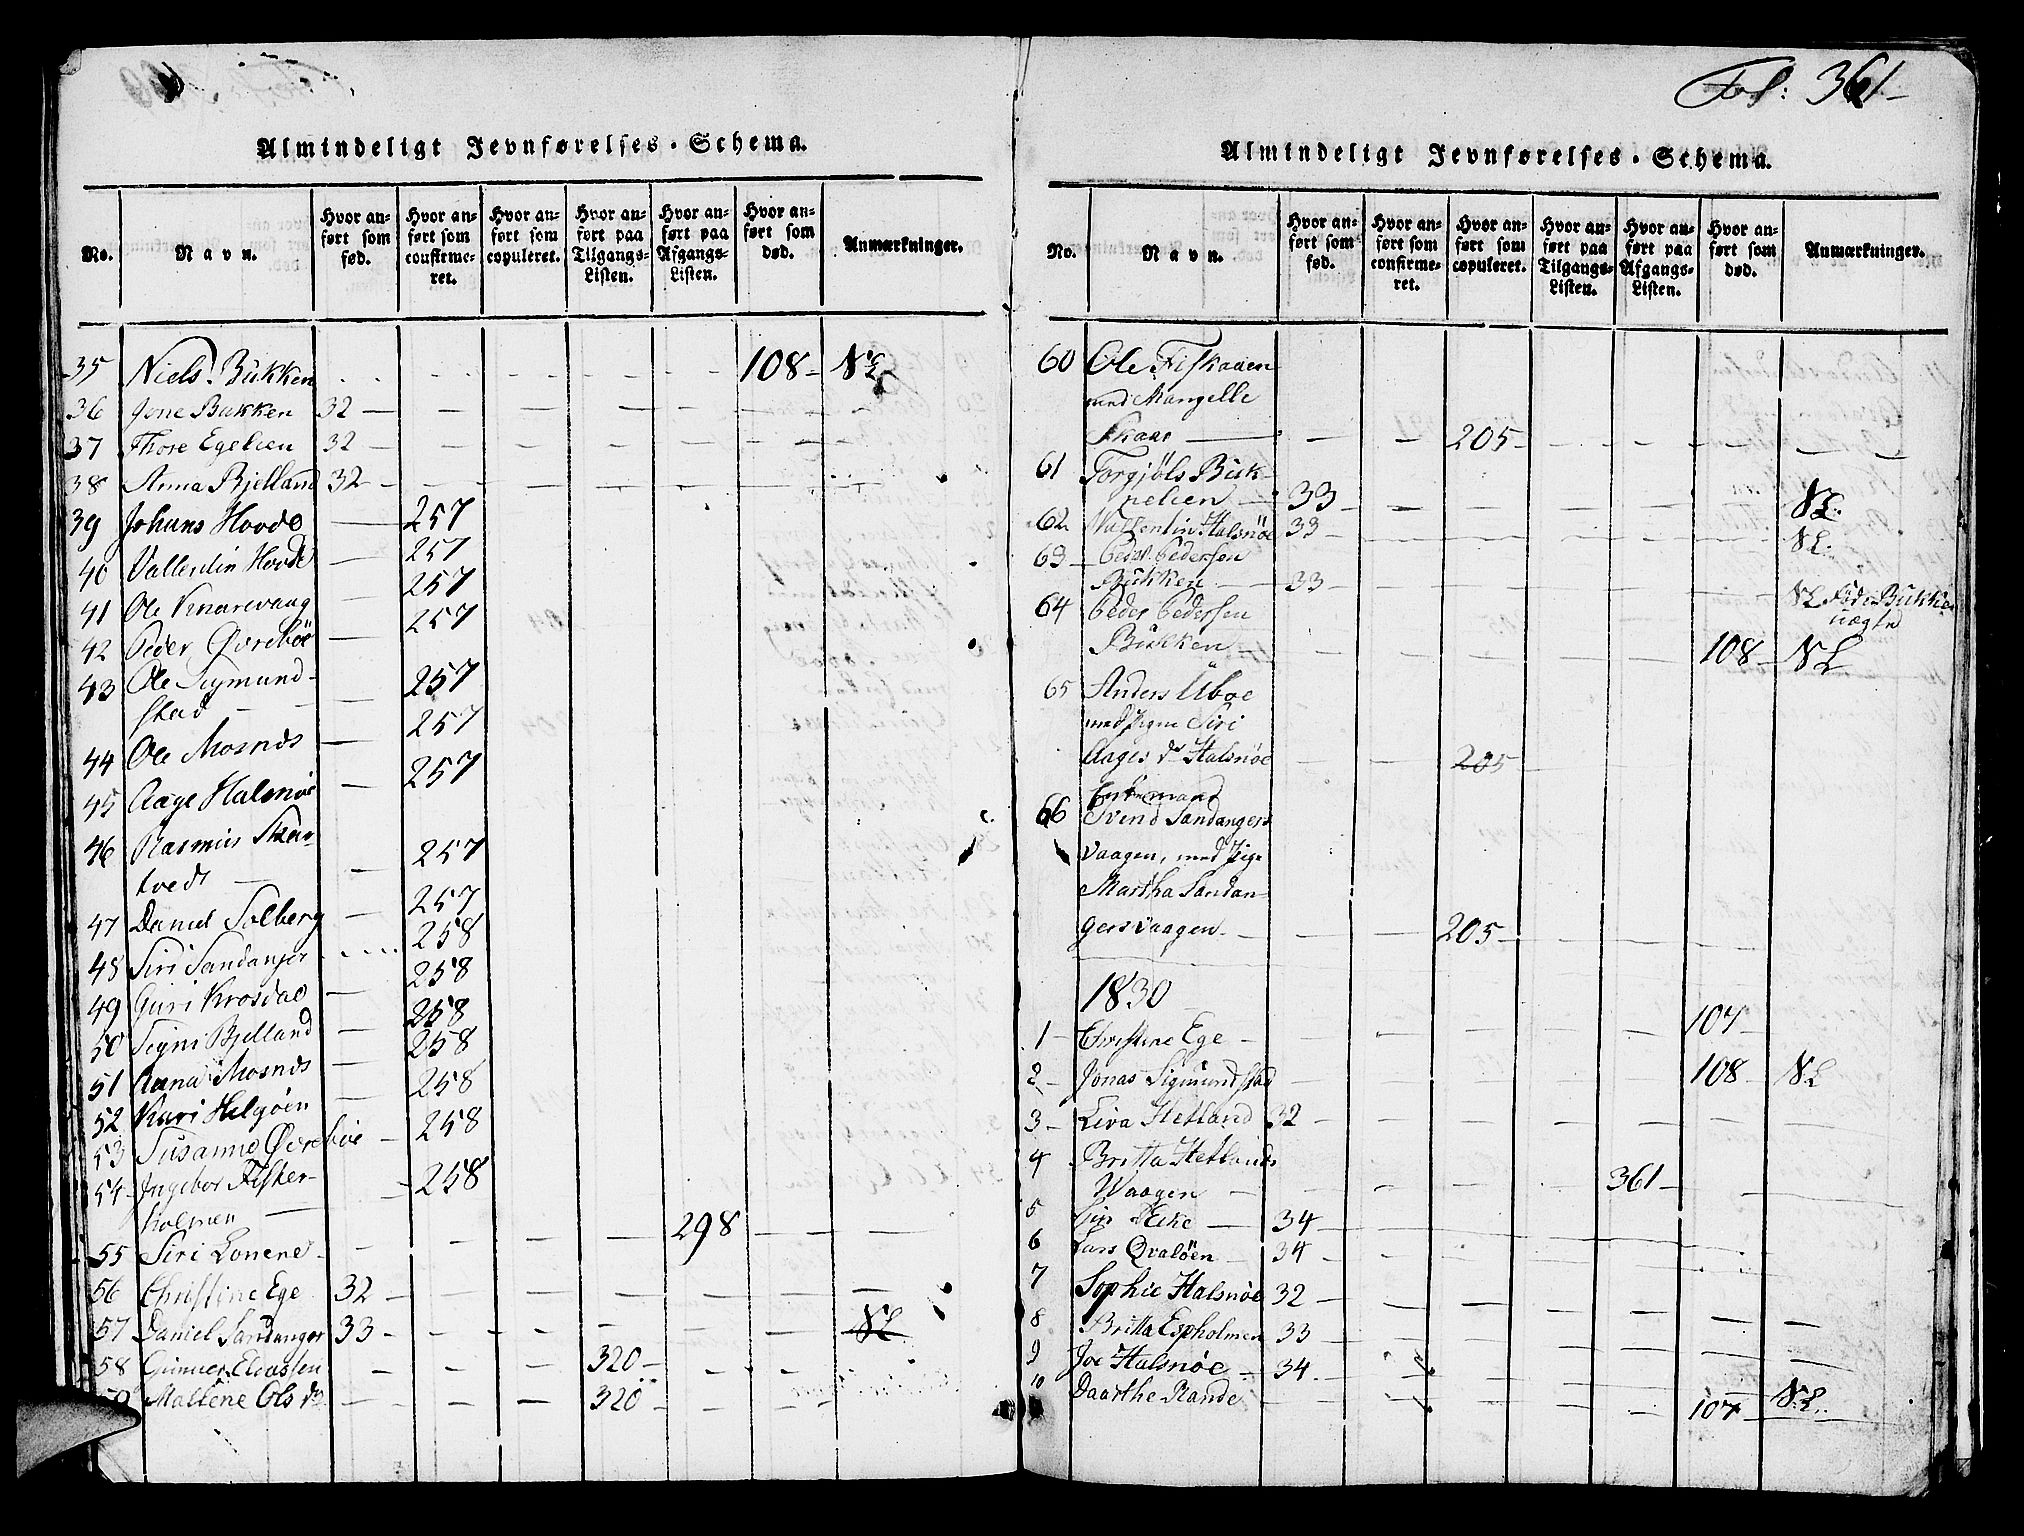 Almindeligt Jevnførelses-Schema.
No. Navn. Hvor anført som fød. Hvor anført som confirmeret. Hvor anført som copuleret. Hvor anført paa Tilgangs-Listen. Hvor anført paa Afgangs-Listen. Hvor anført som død. Anmærkninger.
35 Niels Bukken 108 NL
36 Jone Bukken 32
37 Thore Egeleen 32
38 Anna Bjelland 32
39 Johans Hovde 257
40 Vallentin Hovde 257
41 Ole Knarevaag 257
42 Peder Øvrebøe 257
43 Ole Sigmund-
stad 257
44 Ole Mosnes 257
45 Aage Halsnøe 257
46 Rasmus Skar-
tvedt 257
47 Daniel Solberg 257
48 Siri Sandanger 258
49 Guri Krosdal 258
50 Signi Bjelland 258
51 Anna Mosnes 258
52 Kari Helgøen 258
53 Susanne Øvrebøe 258
54 Ingebor Fisker-
holmen 258
55 Siri Lonene 298
56 Christine Ege 32
57 Daniel Sandanger 33 NL
58 Gunner Eliassen 320
59 Mallene Ols dr 320
Fol: 361
Almindeligt Jevnførelses-Schema.
No. Navn. Hvor anført som fød. Hvor anført som confirmeret. Hvor anført som copuleret. Hvor anført paa Tilgangs-Listen. Hvor anført paa Afgangs-Listen. Hvor anført som død. Anmærkninger.
60 Ole Fiskaaen
med Mangelle
Skaar 205
61 Torgjøls Buk-
keleen 33 NL.
62 Vallentin Halsnøe 33 NL.
63 Peder Pedersen
Bukken 33 NL Føde Bukken
nægte
64 Peder Pedersen
Bukken 108 NL
65 Anders Uboe
med Pigen Siri
Aages dr Halsnøe 205
66 Enkemand
Svend Sandangers
vaagen, med Pige
Martha Sandan-
gersvaagen 205
1830
1 Christine Ege 107
2 Jonas Sigmundstad 108 NL
3 Liva Hetland 32
4 Britta Hetlands
Waagen 361
5 Eike 34
6 Lars Qvaløen 34
7 Sophie Halsnøe 32
8 Britta Espholmen 33
9 Joe Halsnøe 34
10 Daarthe Rande 107 NL.